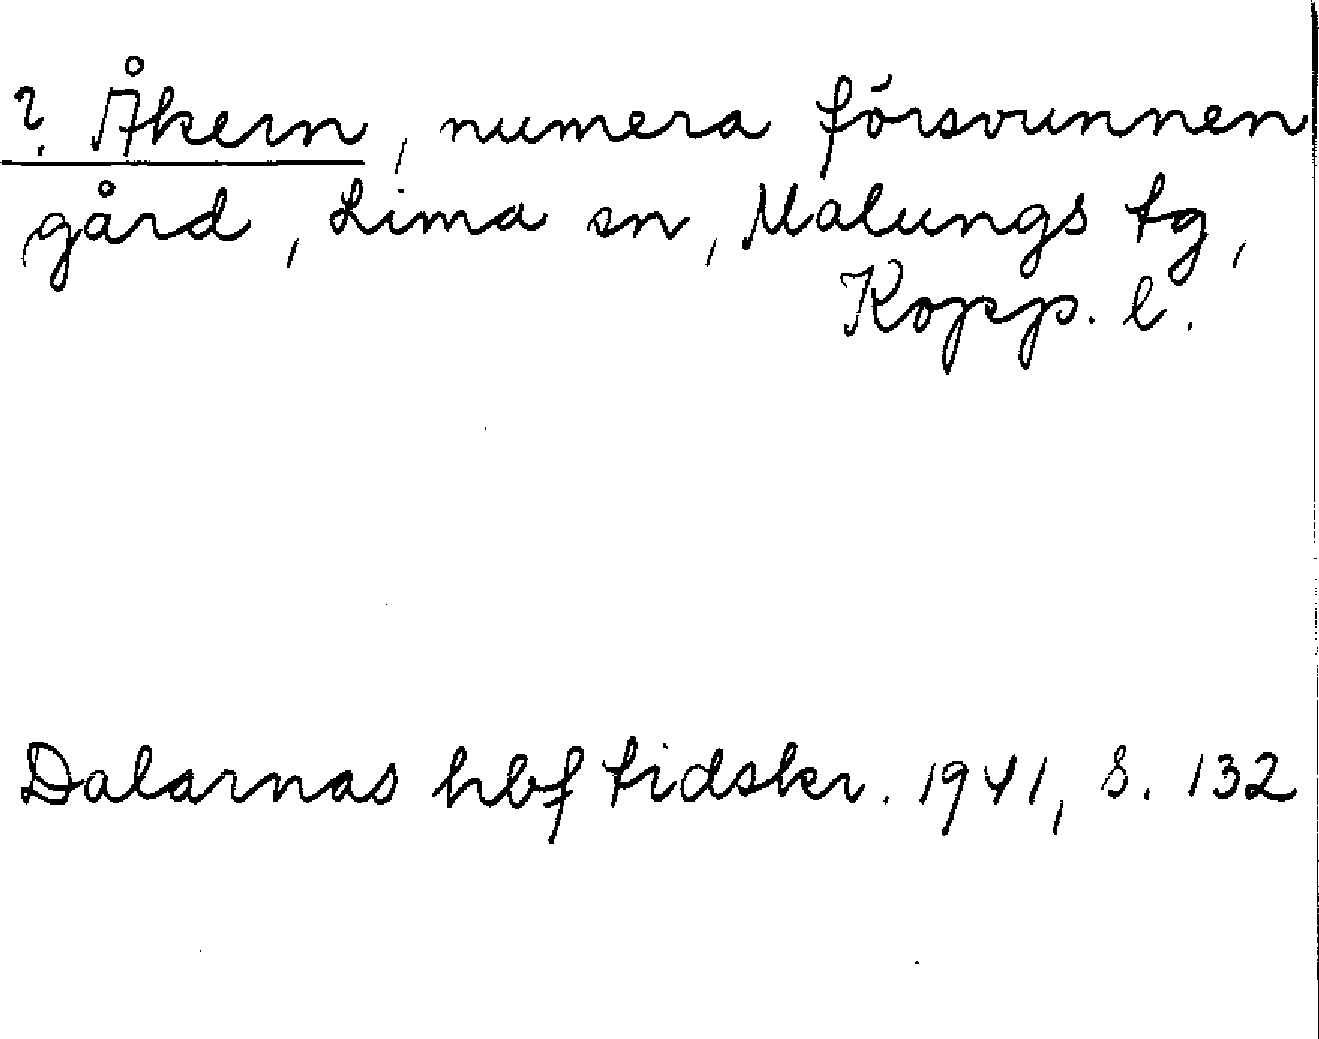 ? Åkern, numera försvunnen
gård, Lima sn, Malungs tg,
Kopp. l.
Dalarnas hbf tidskr. 1941, s. 132